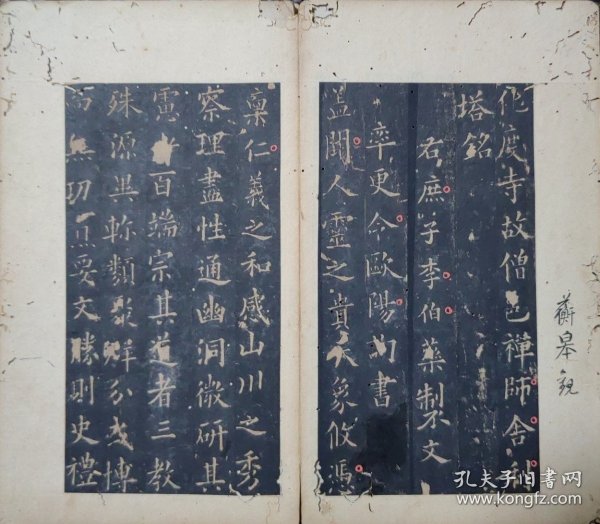 化度寺故僧邕禪師舍利
塔銘
右庶子李伯藥製文
率更令歐陽詢書
蓋聞人靈之貴天象攸憑
稟仁義之和感山川之秀
察理盡性通幽洞微研其
慮者百端宗其道者三教
殊源異軫類聚群分或博
而無功勞而寡要文勝則史禮
蘅皋 觀
孔夫子旧书网
www.kongfz.com